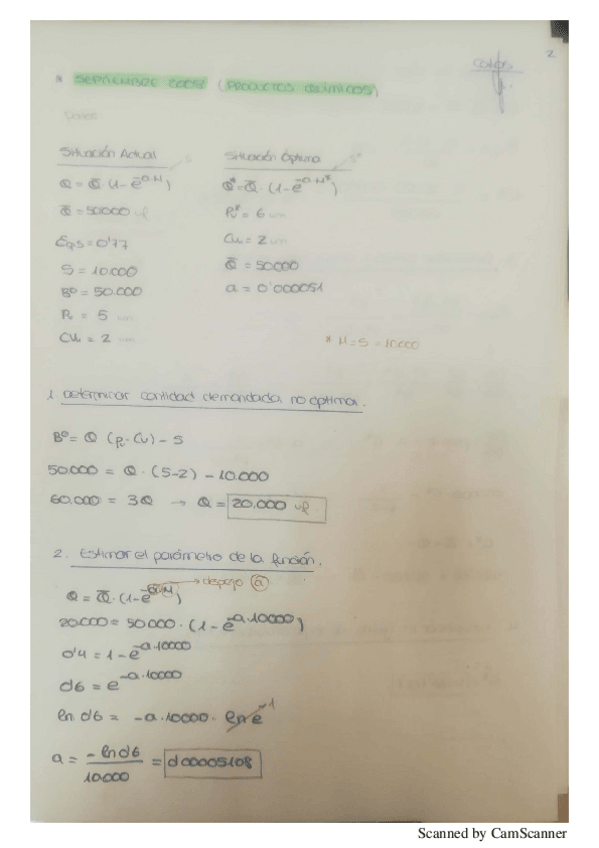 2
* SEPTIEMBRE (PRODUCTOS QUÍMICOS)
Datos
Situación Actual
Q = Q̄·(1-e^-a·M)
Q̄ = 50.000
EQS = 0'77
S = 10.000
Bº = 50.000
Pu = 5 um
Cu = 2 um
Situación Óptima
Q* = Q̄·(1-e^-a·M*)
Pu* = 6 um
Cu = 2 um
Q̄ = 50000
a = 0'000051
* M = S = 10.000
1. Determinar cantidad demandada no óptima.
Bº = Q (Pu - Cu) - S
50.000 = Q · (5-2) - 10.000
60.000 = 3Q → Q = 20.000
2. Estimar el parámetro de la función.
Q = Q̄·(1-e^-a·M) → despejo a
20.000 = 50.000 · (1-e^-a·10000)
0'4 = 1-e^-a·10000
0'6 = e^-a·10000
ln 0'6 = -a·10000· ln e 1
a = -ln 0'6 / 10000 = 0'00005108
Scanned by CamScanner